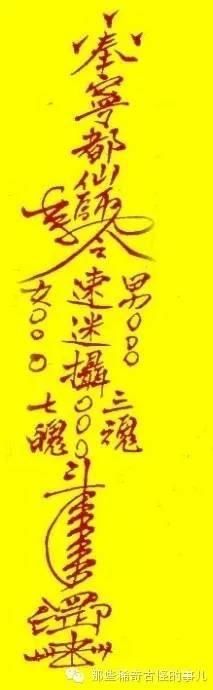 奉寧都仙師令
男○○○
速迷攝○○○
女○○○
三魂
七魄
斗
那些稀奇古怪的事儿